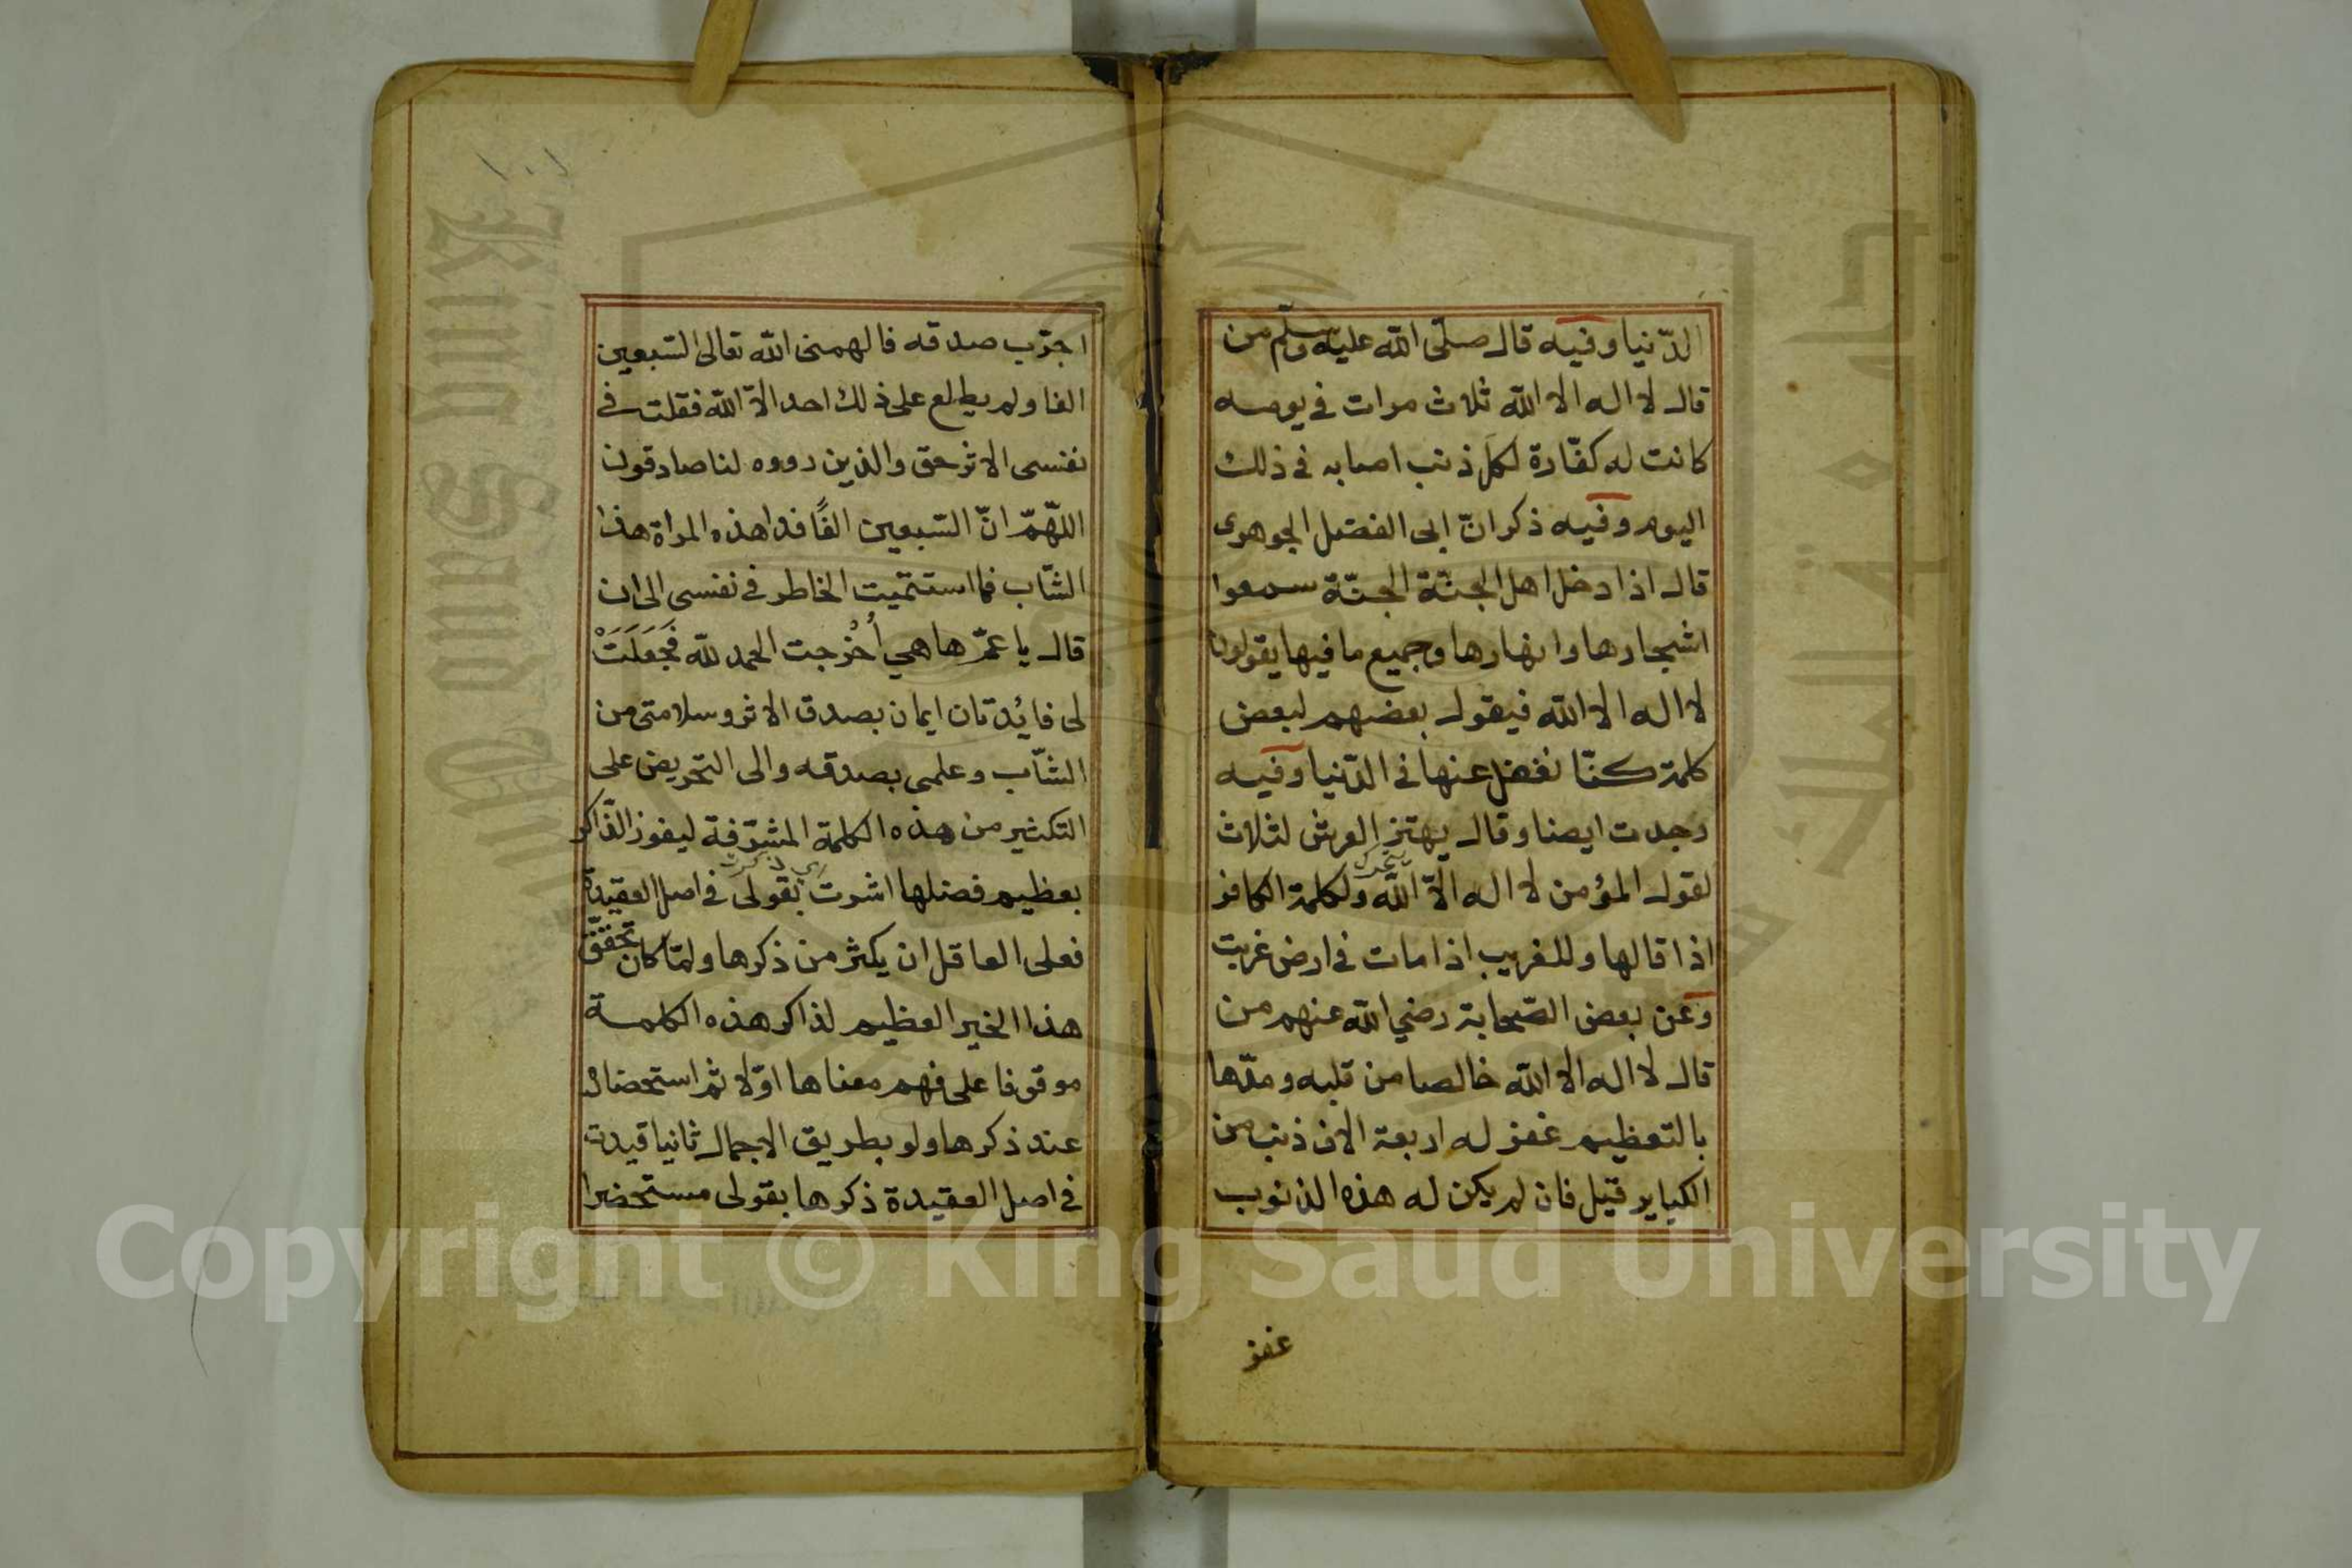 الدّنيا وفيه قال صلّى الله عليه وسلّم من
قال لا اله الا الله ثلاث مرات في يومه
كانت له كفّارة لكل ذنب اصابه في ذلك
اليوم وفيه ذكر انّ ابى الفضل الجوهرى
قال اذا دخل اهل الجنّة الجنّة سمعوا
اشجارها وانهارها وجميع ما فيها يقولون
لا اله الا الله فيقول بعضهم لبعض
كلمة كنّا نغفل عنها في الدّنيا وفيه
وجدت ايضا وقال يهتز العرش لثلاث
يتحرك
لقول المؤمن لا اله الّا الله ولكلمة الكافر
اذا قالها وللغريب اذا مات في ارض غربت
وعن بعض الصّحابة رضي الله عنهم من
قال لا اله الا الله خالصا من قلبه ومدّها
بالتعظيم غفر له اربعة الاف ذنب من
الكباير قيل فان لم يكن له هذه الذنوب
غفر
اجرّب صدقه فالهمنى الله تعالى السّبعين
الفا ولم يطلع على ذلك احد الّا الله فقلت في
نفسى الاثر حق والذين رووه لنا صادقون
اللّهمّ انّ السّبعين الفًا فدا هذه المراة هذا
الشّاب فما استتميت الخاطر في نفسى الى ان
قال يا عمّ ها هي أُخْرجت الحمد لله فَجَعَلَتْ
لى فائدتان ايمان بصدق الاثر وسلامتى من
الشّاب وعلمى بصدقه والى التحريض على
التكثير من هذه الكلمة المشرّفة ليفوز الذّاكر
بعظيم فضلها اشرت بقولى في اصل العقيدة
فعلى العاقل ان يكثر من ذكرها ولمّا كان تحقّق
هذا الخير العظيم لذاكر هذه الكلمة
موقوفا على فهم معناها اوّلا ثم استحضاره
عند ذكرها ولو بطريق الاجمال ثانيا قيدت
في اصل العقيدة ذكرها بقولى مستحضرا
Copyright © King Saud University